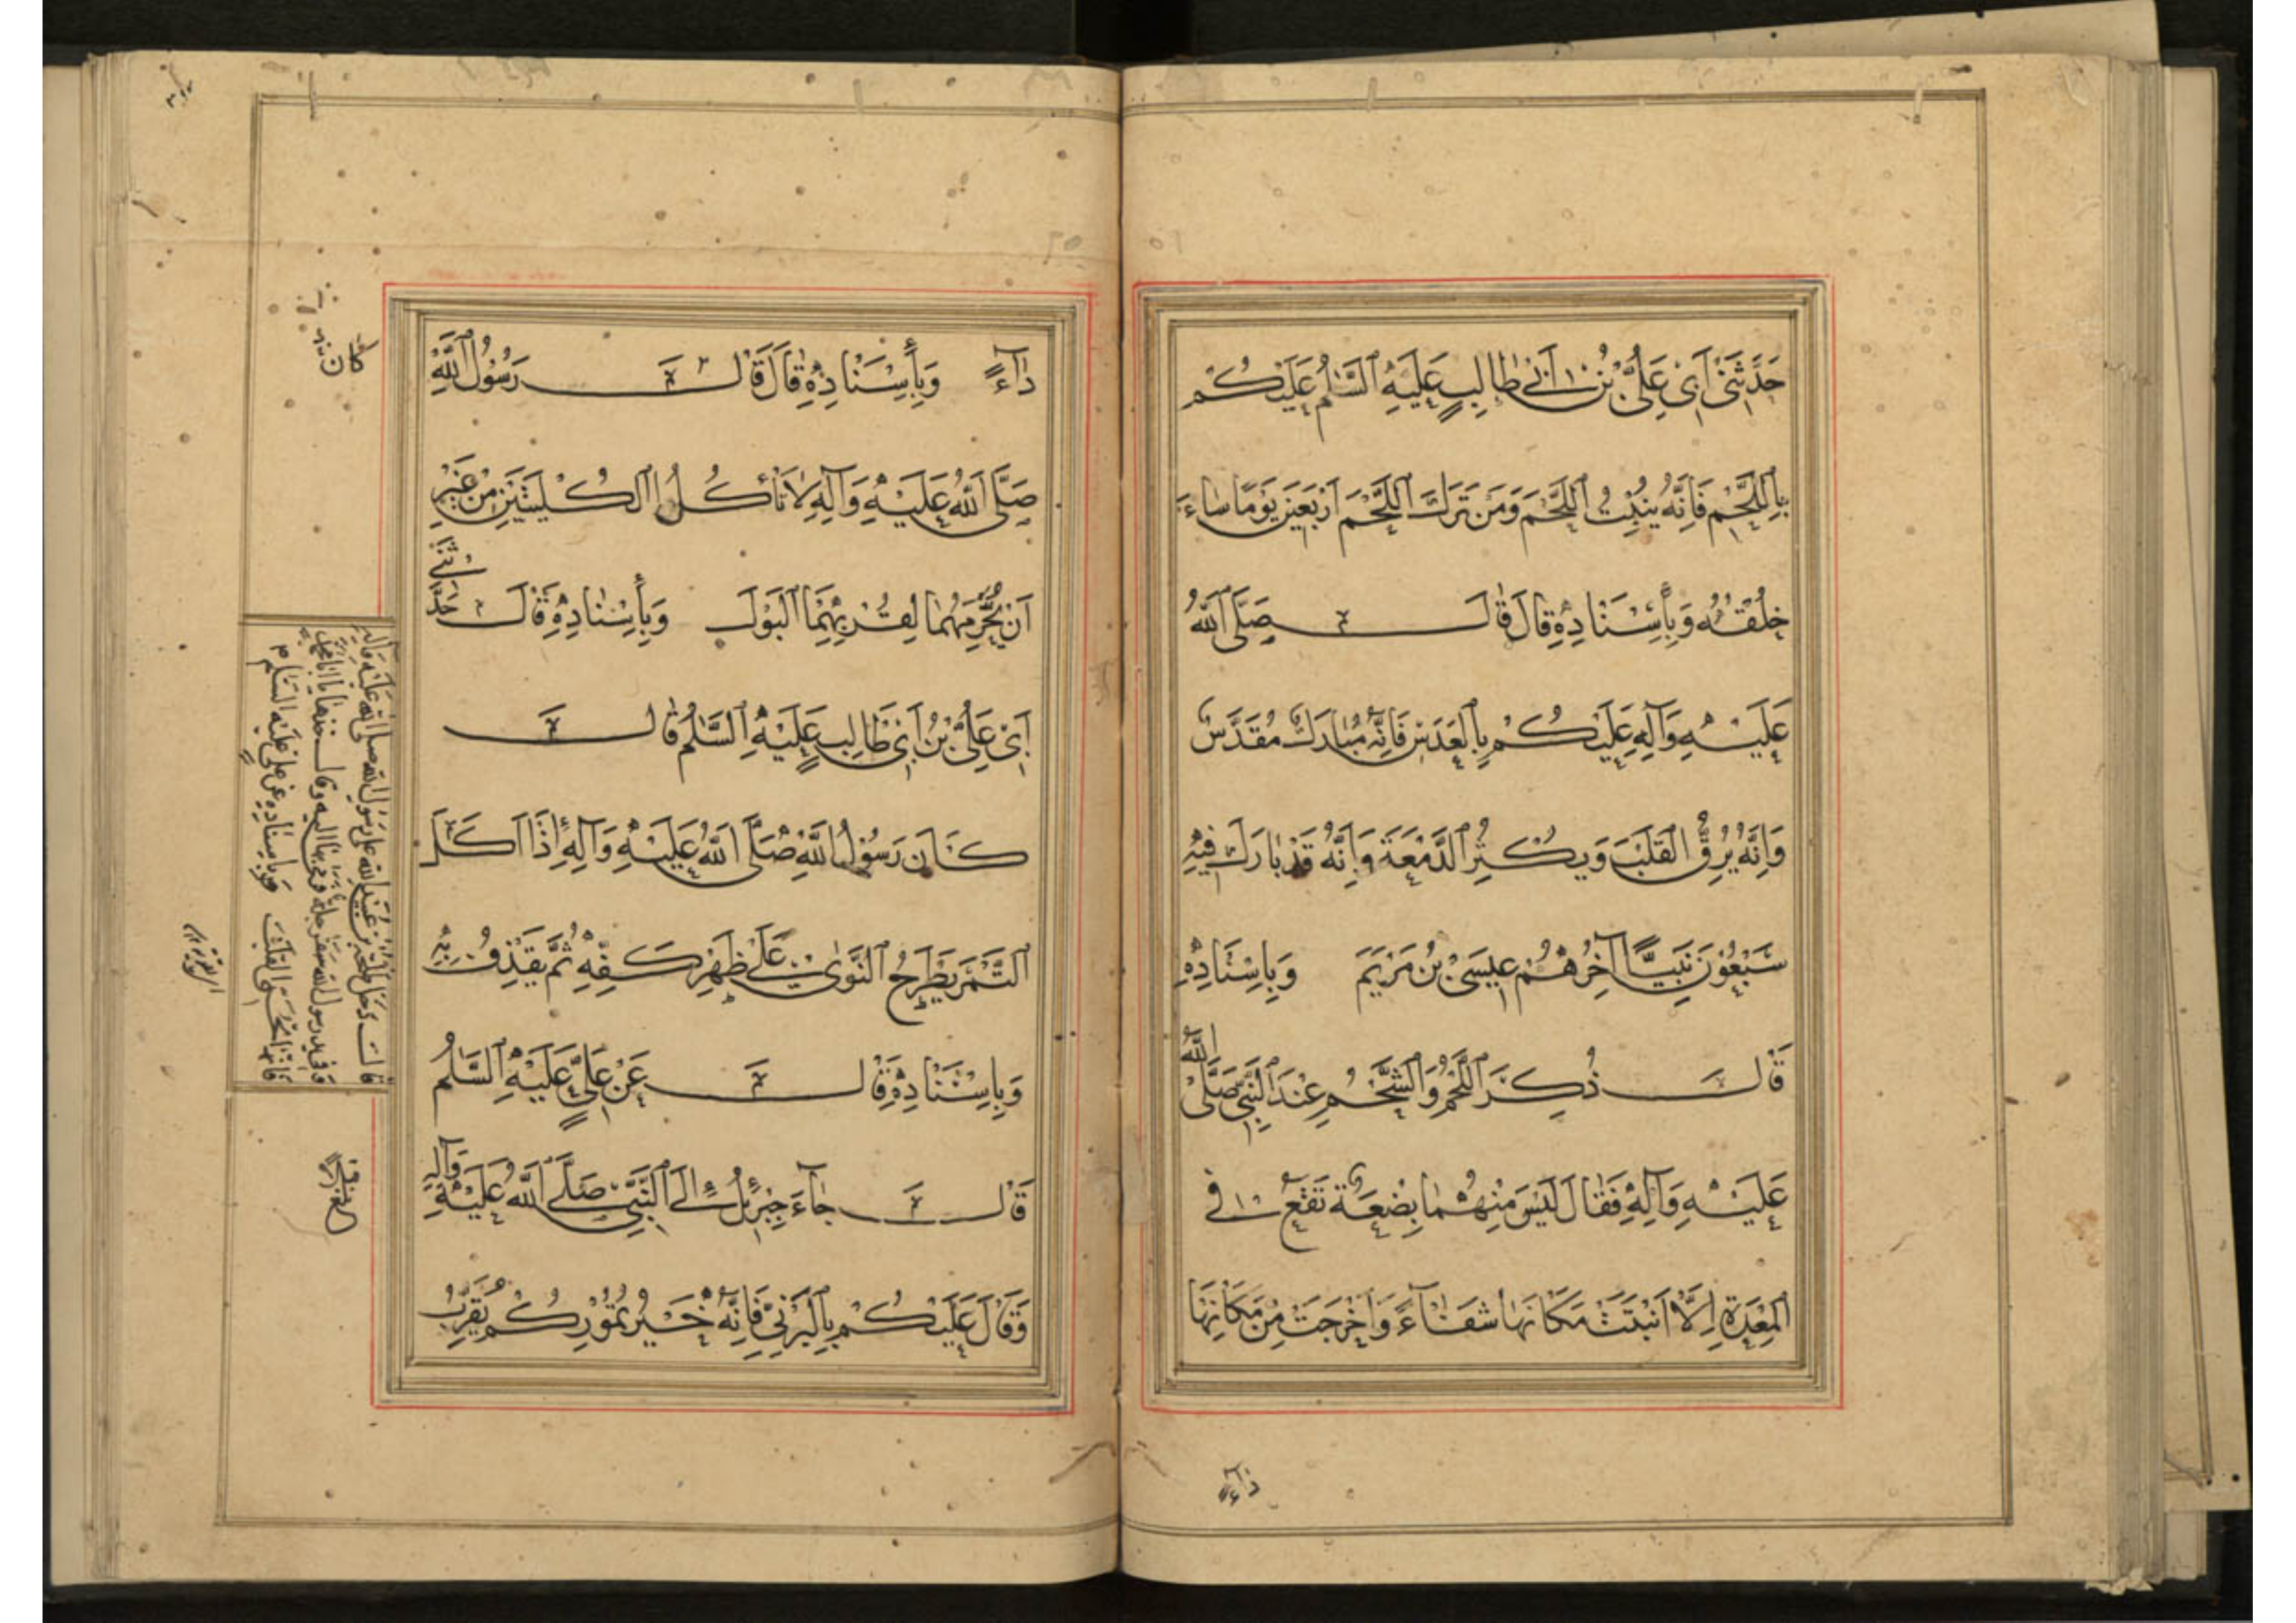 حَدَّثَنِي أَبِي عَلِيُّ بْنُ أَبِي طَالِبٍ عَلَيْهِ السَّلٰمُ عَلَيْكُمْ
بِاللَّحْمِ فَإِنَّهُ يُنْبِتُ اللَّحْمَ وَمَنْ تَرَكَ اللَّحْمَ أَرْبَعِينَ يَوْمًا سَاءَ
خُلُقُهُ وَبِأَسْنَادِهِ قَالَ قَالَ صَلَّى اللَّهُ
عَلَيْهِ وَآلِهِ عَلَيْكُمْ بِالْعَدَسِ فَإِنَّهُ مُبَارَكٌ مُقَدَّسٌ
وَإِنَّهُ يُرِقُّ الْقَلْبَ وَيُكْثِرُ الدَّمْعَةَ وَإِنَّهُ قَدْ بَارَكَ فِيهِ
سَبْعُونَ نَبِيًّا آخِرُهُمْ عِيسَى بْنُ مَرْيَمَ وَبِاسْنَادِهِ
قَالَ ذُكِرَ اللَّحْمُ وَالشَّحْمُ عِنْدَ النَّبِيِّ صَلَّى اللَّهُ
عَلَيْهِ وَآلِهِ فَقَالَ لَيْسَ مِنْهُمَا بِضْعَةٌ تَقَعُ فِي
الْمِعْدَةِ إِلَّا أَنْبَتَتْ مَكَانَهَا شِفَاءً وَأَخْرَجَتْ مِنْ مَكَانِهَا
دَاءً
دَآءً وَبِأَسْنَادِهِ قَالَ قَالَ رَسُولُ اللَّهِ
صَلَّى اللَّهُ عَلَيْهِ وَآلِهِ لَا تَأْكُلُ الْكُلْيَتَيْنِ مِنْ غَيْرِ
أَنْ يُحَرِّمَهُمَا لِقُرْبِهِمَا الْبَوْلَ وَبِأَسْنَادِهِ قَالَ حَدَّثَنِي
أَبِي عَلِيُّ بْنُ أَبِي طَالِبٍ عَلَيْهِ السَّلٰمُ قَالَ
كَانَ رَسُولُ اللَّهِ صَلَّى اللَّهُ عَلَيْهِ وَآلِهِ إِذَا أَكَلَ
التَّمْرَ يَطْرَحُ النَّوَى عَلَى ظَهْرِ كَفِّهِ ثُمَّ يَقْذِفُ بِهِ
وَبِاسْنَادِهِ قَالَ عَنْ عَلِيٍّ عَلَيْهِ السَّلٰمُ
قَالَ جَآءَ جِبْرِئِلُ إِلَى النَّبِيِّ صَلَّى اللَّهُ عَلَيْهِ وَآلِهِ
وَقَالَ عَلَيْكُمْ بِالْبَرْنِيِّ فَإِنَّهُ خَيْرُ تُمُورِكُمْ يُقَرِّبُ
كان
قالت دخل طلحة بن عبيد الله على رسول الله صلى الله عليه وآله
وفي يد رسول الله سفرجلة وقال خذها يا ابا محمد
فانها تجم القلب وباسناده عن علي عليه السلام